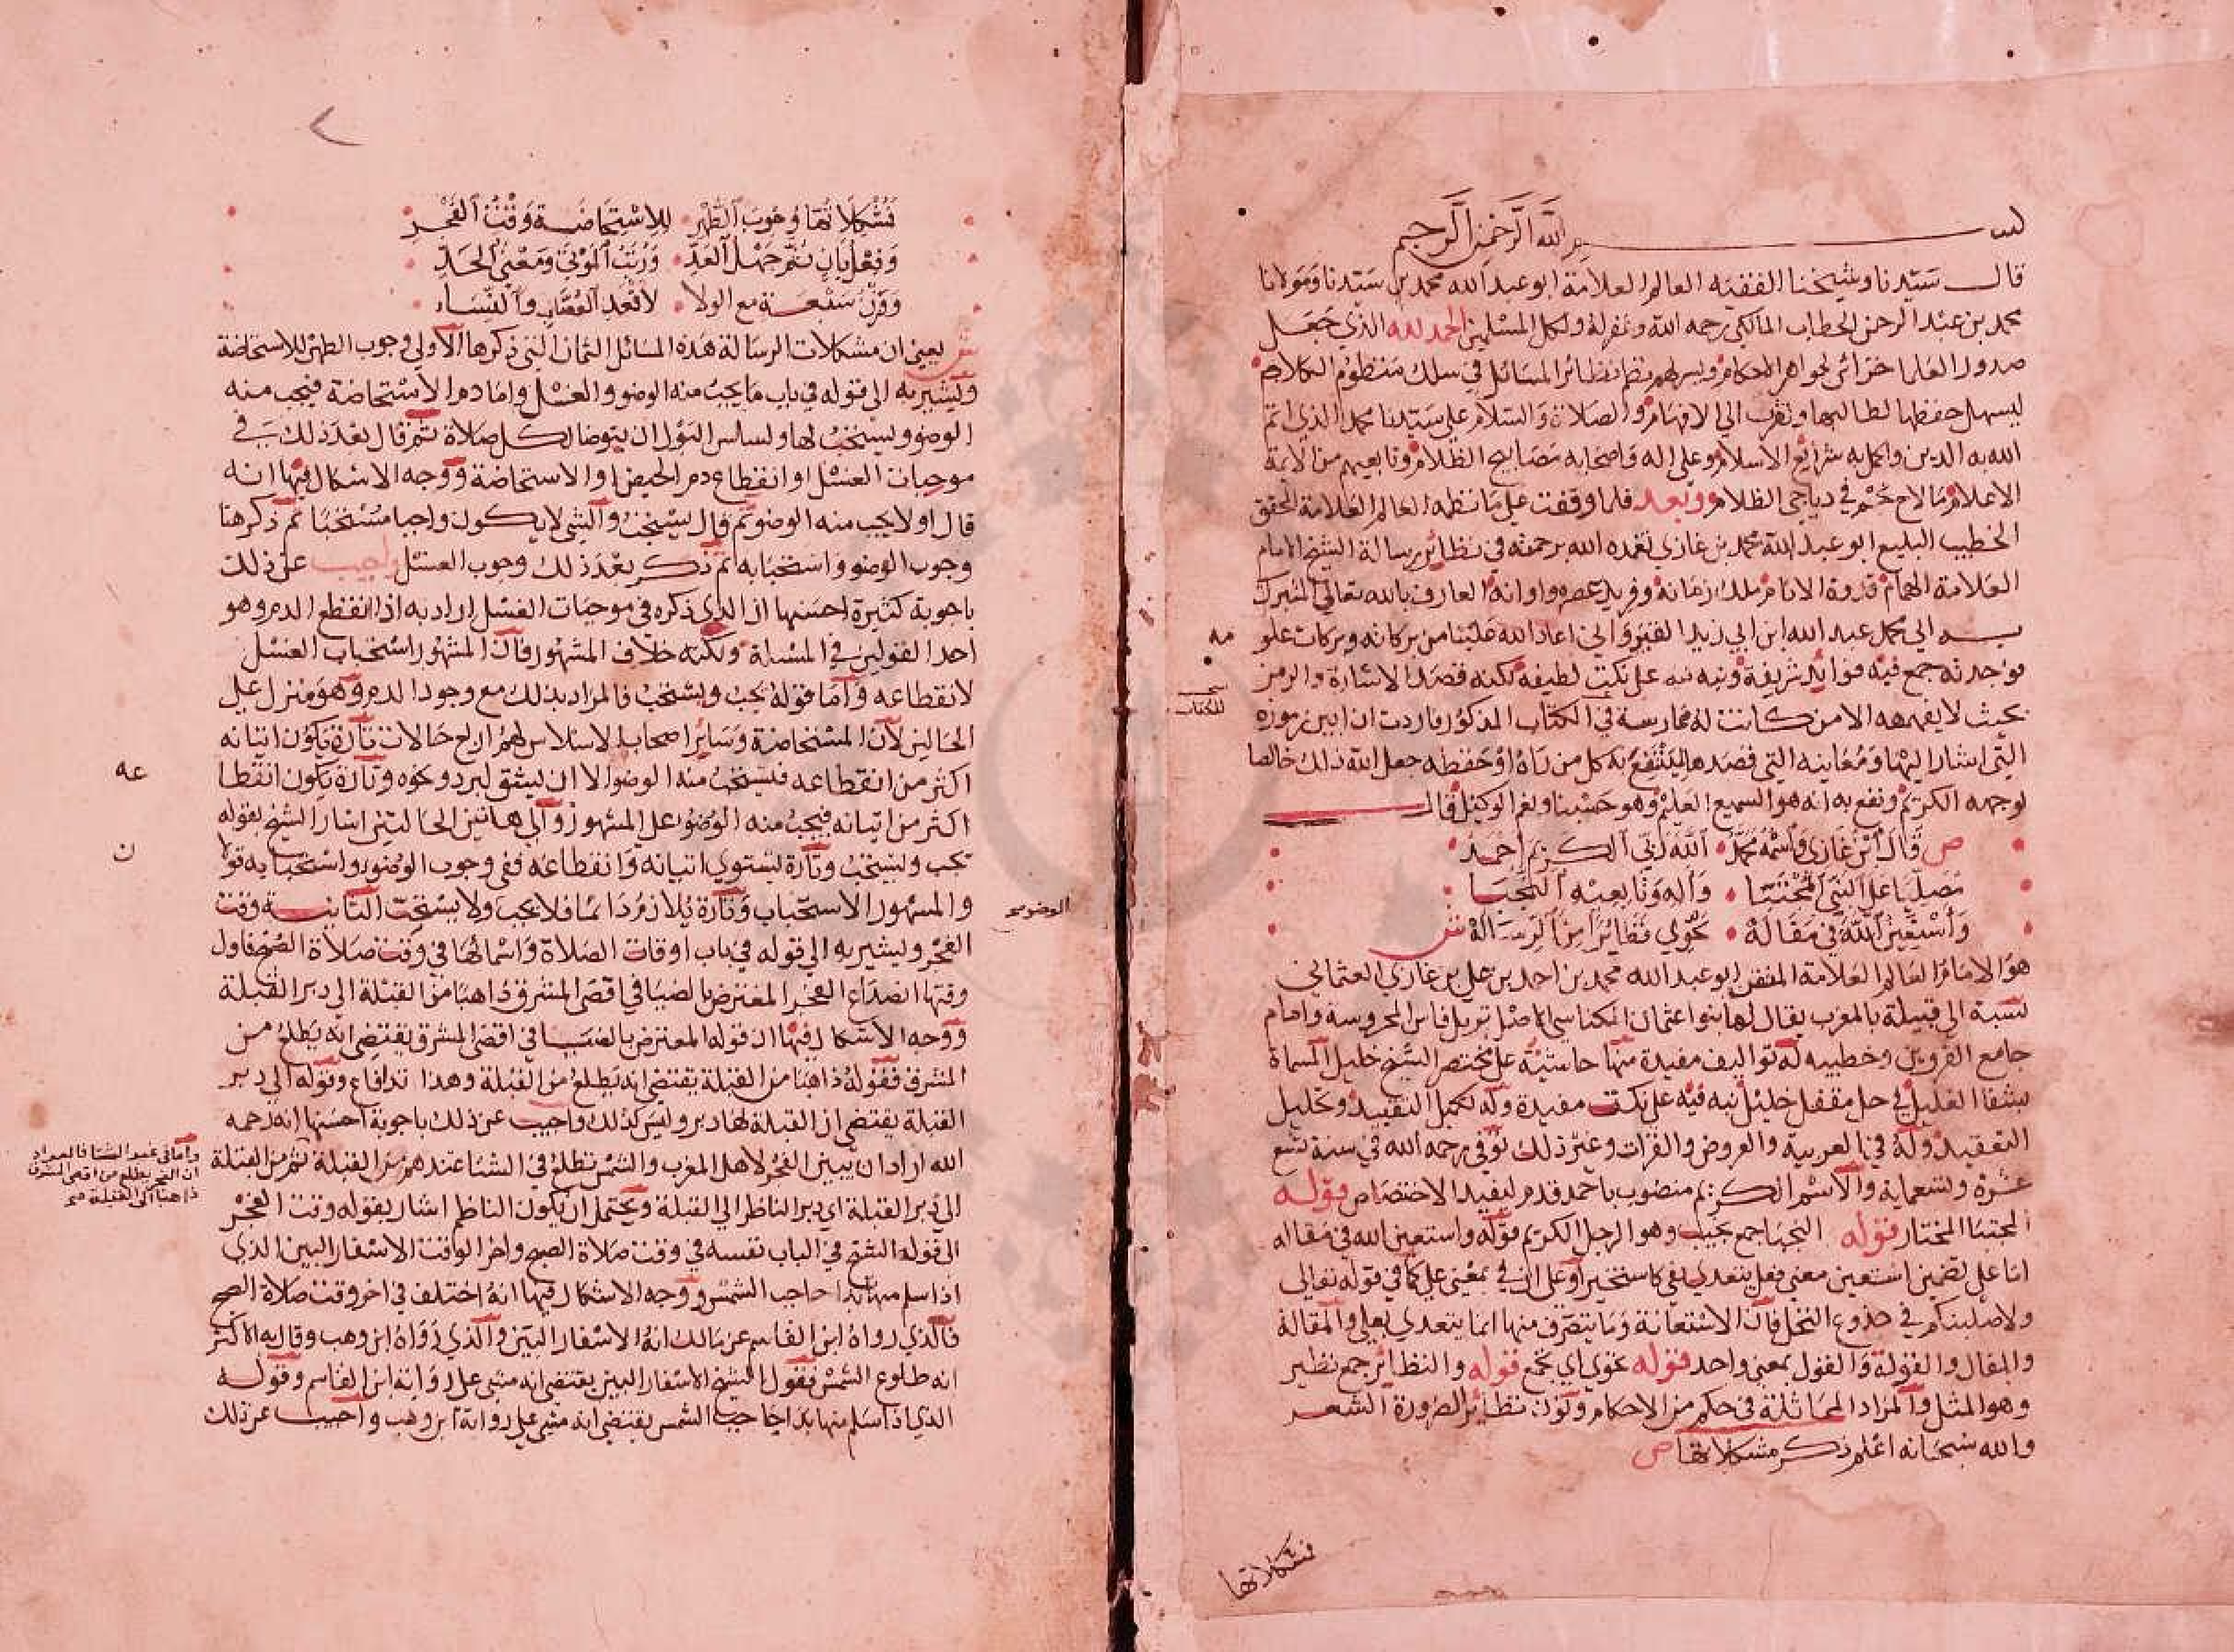 بسم الله الرحمن الرحيم
قال سيدنا وشيخنا الفقيه العالم العلامة ابو عبد الله محمد بن سيدنا ومولانا
محمد بن عبد الرحمن الحطاب المالكي رحمه الله ونفع له ولكل المسلمين الحمد لله الذي جعل
صدور العلما خزائن لجواهر الاحكام ويسر لهم نظم نظائر المسائل في سلك منظوم الكلام
ليسهل حفظها لطالبها وتقرب الي الافهام والصلاة والسلام علي سيدنا محمد الذي اتم
الله به الدين واكمل به شرائع الاسلام وعلي اله واصحابه مصابيح الظلام وتابعيهم من الائمة
الاعلام ما لاح نجم في دياجي الظلام وبعد فلما وقفت علي ما نظمه العالم العلامة المحقق
الخطيب البليغ ابو عبد الله محمد بن غازي تغمده الله برحمته في نظائر رسالة الشيخ الامام
العلامة الهمام قدوة الانام ملك زمانه وفريد عصره واوانه العارف بالله تعالي المتبرك
به ابي محمد عبد الله ابن ابي زيد القيرواني اعاد الله علينا من بركاته وبركات علومه
فوجدته جمع فيه فوائد شريفة ونبه فيه علي نكت لطيفة لكنه قصد الاشارة والرمز
بحيث لا يفهمه الا من كانت له ممارسة في الكتاب المذكور فاردت ان ابين رموزه
التي اشار اليها ومعانيه التي قصدها لينتفع به كل من رءاه او حفظه جعل الله ذلك خالصا
لوجهه الكريم ونفع به انه هو السميع العليم وهو حسبنا ونعم الوكيل قال
ص قال ابن غازي واسمه محمد الله ربي الكريم احمد
مصليا علي النبي المجتبا واله وتابعيه النجبا
واستعين الله في مقاله تحوي نظائرا من الرساله ش
هو الامام العالم العلامة المتفنن ابو عبد الله محمد بن احمد بن علي بن غازي العثماني
نسبة الي قبيلة بالمغرب يقال لها بنوا عثمان المكناسي الاصل نزيل فاس المحروسة وامام
جامع القرويين وخطيبه له تواليف مفيدة منها حاشية علي مختصر الشيخ خليل المسماة
بشفا الغليل في حل مقفل خليل نبه فيه علي نكت مفيدة وله تكميل التقييد وتحليل
التعقيد وله في العربية والعروض والقراات وغير ذلك توفي رحمه الله في سنة تسع
عشرة وتسعماية والاسم الكريم منصوب باحمد قدم ليفيد الاختصاص قوله
المجتبا المختار قوله النجبا جمع نجيب وهو الرجل الكريم قوله واستعين الله في مقاله
اما علي تضمين استعين معني فعل يتعدي بفي كاستخير او علي ان في بمعني علي كما في قوله تعالي
ولاصلبنكم في جذوع النخل فان الاستعانة وما يتصرف منها انما يتعدي بعلي والمقالة
والمقال والقولة والقول بمعني واحد قوله تحوي اي تجمع قوله والنظائر جمع نظير
وهو المثل والمراد المماثلة في حكم من الاحكام ونون نظائر لضرورة الشعر
والله سبحانه اعلم ذكر مشكلاتها ص
مشكلاتها
مشكلاتها وجوب الطهر للاستحاضة وقت الفجر
وفعل بان ثم جهل العد ورتب الموتى ومعنى الحد
وقرن سبعة مع الولا لا تعد العقاب والنساء
ش يعني ان مشكلات الرسالة هذه المسائل الثمان التي ذكرها الاولي وجوب الطهر للاستحاضة
ويشير به الي قوله في باب ما يجب منه الوضو والغسل واما دم الاستحاضة فيجب منه
الوضو ويستحب لها ولسلس البول ان يتوضا لكل صلاة ثم قال بعد ذلك في
موجبات الغسل او انقطاع دم الحيض او الاستحاضة ووجه الاشكال فيها انه
قال اولا يجب منه الوضو ثم قال يستحب والشي لا يكون واجبا مستحبا ثم ذكر هنا
وجوب الوضو واستحبابه ثم ذكر بعد ذلك وجوب الغسل واجيب عن ذلك
باجوبة كثيرة احسنها ان الذي ذكره في موجبات الغسل اراد به اذا انقطع الدم وهو
احد القولين في المسالة ولكنه خلاف المشهور فان المشهور استحباب الغسل
لانقطاعه واما قوله يجب ويستحب فالمراد بذلك مع وجود الدم وهو منزل علي
الحالين لان المستحاضة وسائر اصحاب الاسلاس لهم اربع حالات تارة يكون اتيانه
اكثر من انقطاعه فيستحب منه الوضو الا ان يشق لبرد ونحوه وتارة يكون انقطاعه
اكثر من اتيانه فيجب منه الوضو علي المشهور والي هاتين الحالتين اشار الشيخ بقوله
يجب ويستحب وتارة يستوي اتيانه وانقطاعه ففي وجوب الوضو واستحبابه قولان
والمشهور الاستحباب وتارة يلازم دائما فلا يجب ولا يستحب الثانية وقت
الوضو صح
الفجر ويشير به الي قوله في باب اوقات الصلاة واسمائها في وقت صلاة الصبح فاول
وقتها انصداع الفجر المعترض بالضيا في اقصى المشرق ذاهبا من القبلة الي دبر القبلة
ووجه الاشكال فيها ان قوله المعترض بالضيا في اقصى المشرق يقتضي انه يطلع من
المشرق فقوله ذاهبا من القبلة يقتضي انه يطلع من القبلة وهذا تدافع وقوله الي دبر
القبلة يقتضي ان القبلة لها دبر وليس كذلك واجيب عن ذلك باجوبة احسنها انه رحمه
الله اراد ان يبين الفجر لاهل المغرب والشمس تطلع في الشتا عندهم من القبلة ثم من القبلة
واما في غير الشتا فالمراد
ان الفجر يطلع من اقصى المشرق
ذاهبا الي القبلة صح
الي دبر القبلة اي دبر الناظر الي القبلة ويحتمل ان يكون الناظم اشار بقوله وقت الفجر
الي قوله الشيخ في الباب نفسه في وقت صلاة الصبح واخر الوقت الاسفار البين الذي
اذا سلم منها بدا حاجب الشمس ووجه الاشكال فيها انه اختلف في اخر وقت صلاة الصبح
فالذي رواه ابن القاسم عن مالك انه الاسفار البين والذي رواه ابن وهب وقال به الاكثر
انه طلوع الشمس فقول الشيخ الاسفار البين يقتضي انه مشي علي رواية ابن القاسم وقوله
الذي اذا سلم منها بدا حاجب الشمس يقتضي انه مشي علي رواية ابن وهب واجيب عن ذلك